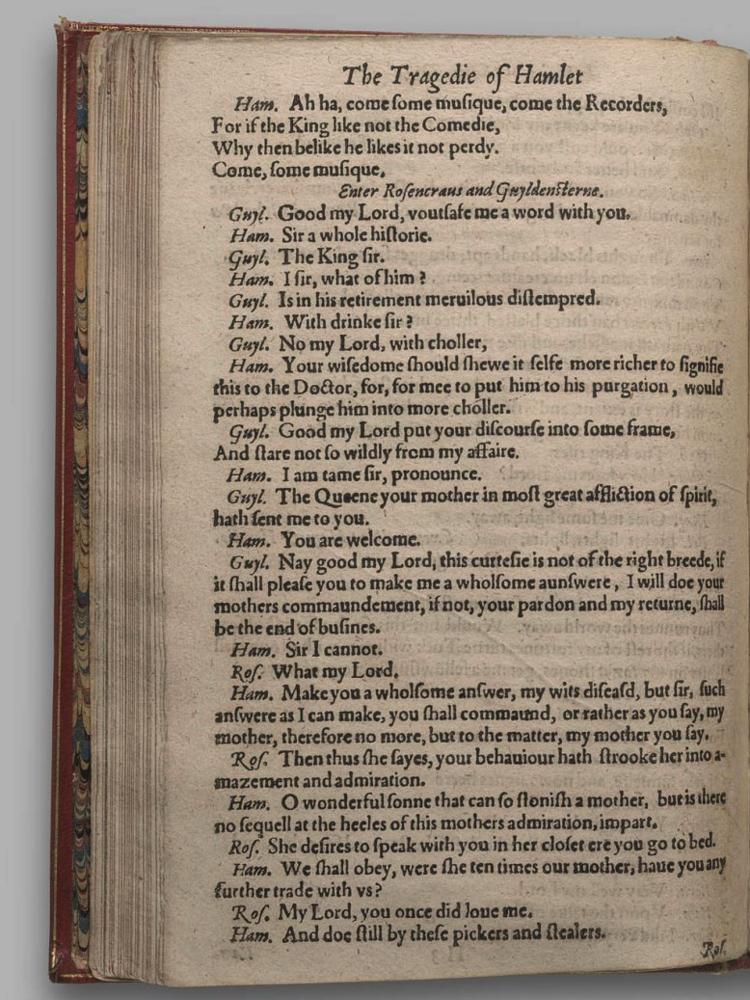 The Tragedie of Hamlet
Ham. Ah ha, come ſome muſique, come the Recorders,
For if the King like not the Comedie,
Why then belike he likes it not perdy.
Come, ſome muſique.
Enter Roſencraus and Guyldenſterne.
Guyl. Good my Lord, voutſafe me a word with you.
Ham. Sir a whole hiſtorie.
Guyl. The King ſir.
Ham. I ſir, what of him?
Guyl. Is in his retirement meruilous diſtempred.
Ham. With drinke ſir?
Guyl. No my Lord, with choller,
Ham. Your wiſedome ſhould ſhewe it ſelfe more richer to ſignifie
this to the Doctor, for, for mee to put him to his purgation, would
perhaps plunge him into more choller.
Guyl. Good my Lord put your diſcourſe into ſome frame,
And ſtare not ſo wildly from my affaire.
Ham. I am tame ſir, pronounce.
Guyl. The Queene your mother in moſt great affliction of ſpirit,
hath ſent me to you.
Ham. You are welcome.
Guyl. Nay good my Lord, this curteſie is not of the right breede, if
it ſhall pleaſe you to make me a wholſome aunſwere, I will doe your
mothers commaundement, if not, your pardon and my returne, ſhall
be the end of buſines.
Ham. Sir I cannot.
Roſ. What my Lord.
Ham. Make you a wholſome anſwer, my wits diſeaſd, but ſir, ſuch
anſwere as I can make, you ſhall commaund, or rather as you ſay, my
mother, therefore no more, but to the matter, my mother you ſay.
Roſ. Then thus ſhe ſayes, your behauiour hath ſtrooke her into a-
mazement and admiration.
Ham. O wonderful ſonne that can ſo ſtoniſh a mother, but is there
no ſequell at the heeles of this mothers admiration, impart.
Roſ. She deſires to ſpeak with you in her cloſet ere you go to bed.
Ham. We ſhall obey, were ſhe ten times our mother, haue you any
further trade with vs?
Roſ. My Lord, you once did loue me.
Ham. And doe ſtill by theſe pickers and ſtealers.
Roſ.